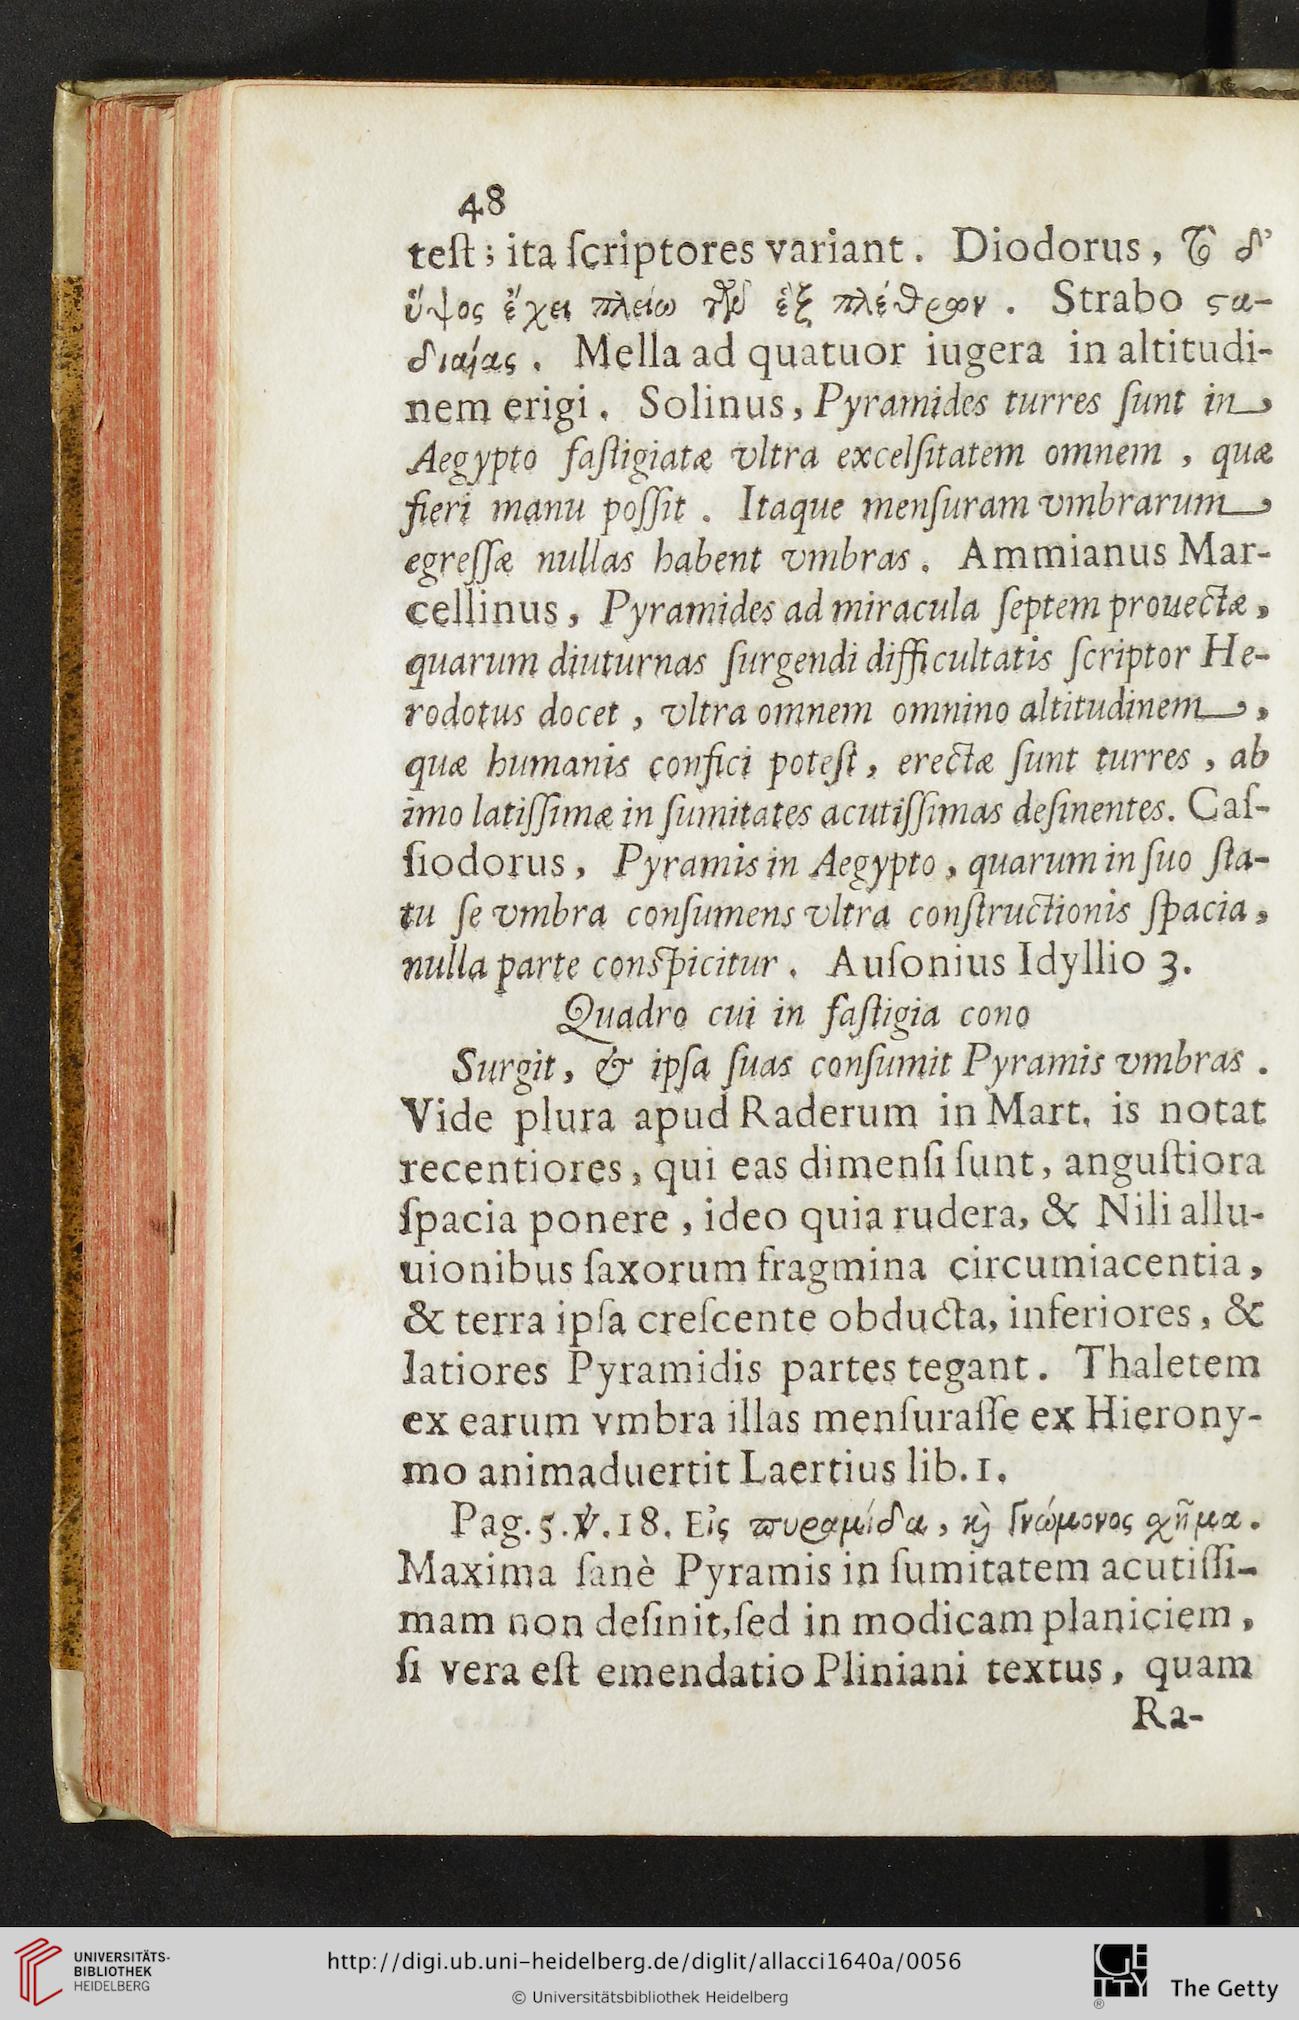 48
teſt; ita ſcriptores variant. Diodorus, τὸ δ’
ὕψος ἔχει πλείω τῶν ἓξ πλέθρων. Strabo ϛα-
διαίας. Mella ad quatuor iugera in altitudi-
nem erigi. Solinus, Pyramides turres ſunt in
Aegypto faſtigiatæ vltra excelſitatem omnem, quæ
fieri manu poſſit. Itaque menſuram vmbrarum
egreſſæ nullas habent vmbras. Ammianus Mar-
cellinus, Pyramides ad miracula ſeptem prouectæ,
quarum diuturnas ſurgendi difficultatis ſcriptor He-
rodotus docet, vltra omnem omnino altitudinem,
quæ humanis confici poteſt, erectæ ſunt turres, ab
imo latiſſimæ in ſumitates acutiſſimas deſinentes. Caſ-
ſiodorus, Pyramis in Aegypto, quarum in ſuo ſta-
tu ſe vmbra conſumens vltra conſtructionis ſpacia,
nulla parte conſpicitur. Auſonius Idyllio 3.
Quadro cui in faſtigia cono
Surgit, & ipſa ſuas conſumit Pyramis vmbras.
Vide plura apud Raderum in Mart. is notat
recentiores, qui eas dimenſi ſunt, anguſtiora
ſpacia ponere, ideo quia rudera, & Nili allu-
uionibus ſaxorum fragmina circumiacentia,
& terra ipſa creſcente obducta, inferiores, &
latiores Pyramidis partes tegant. Thaletem
ex earum vmbra illas menſuraſſe ex Hierony-
mo animaduertit Laertius lib. 1.
Pag. 5. ℣. 18. Εἰς πυραμίδα, καὶ Γνώμονος χῆμα.
Maxima ſanè Pyramis in ſumitatem acutiſſi-
mam non deſinit, ſed in modicam planiciem,
ſi vera eſt emendatio Pliniani textus, quam
Ra-
UNIVERSITÄTS-
BIBLIOTHEK
HEIDELBERG
http://digi.ub.uni-heidelberg.de/diglit/allacci1640a/0056
© Universitätsbibliothek Heidelberg
GETTY
®
The Getty